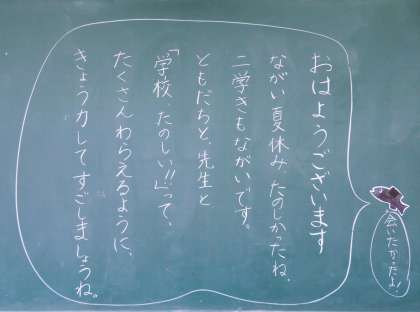 おはようございます
ながい夏休み、たのしかったね、
二学きもながいです。
ともだちと、先生と
「学校、たのしい!!」って、
たくさんわらえるように、
きょう力してすごしましょうね。
会いたかったよ!